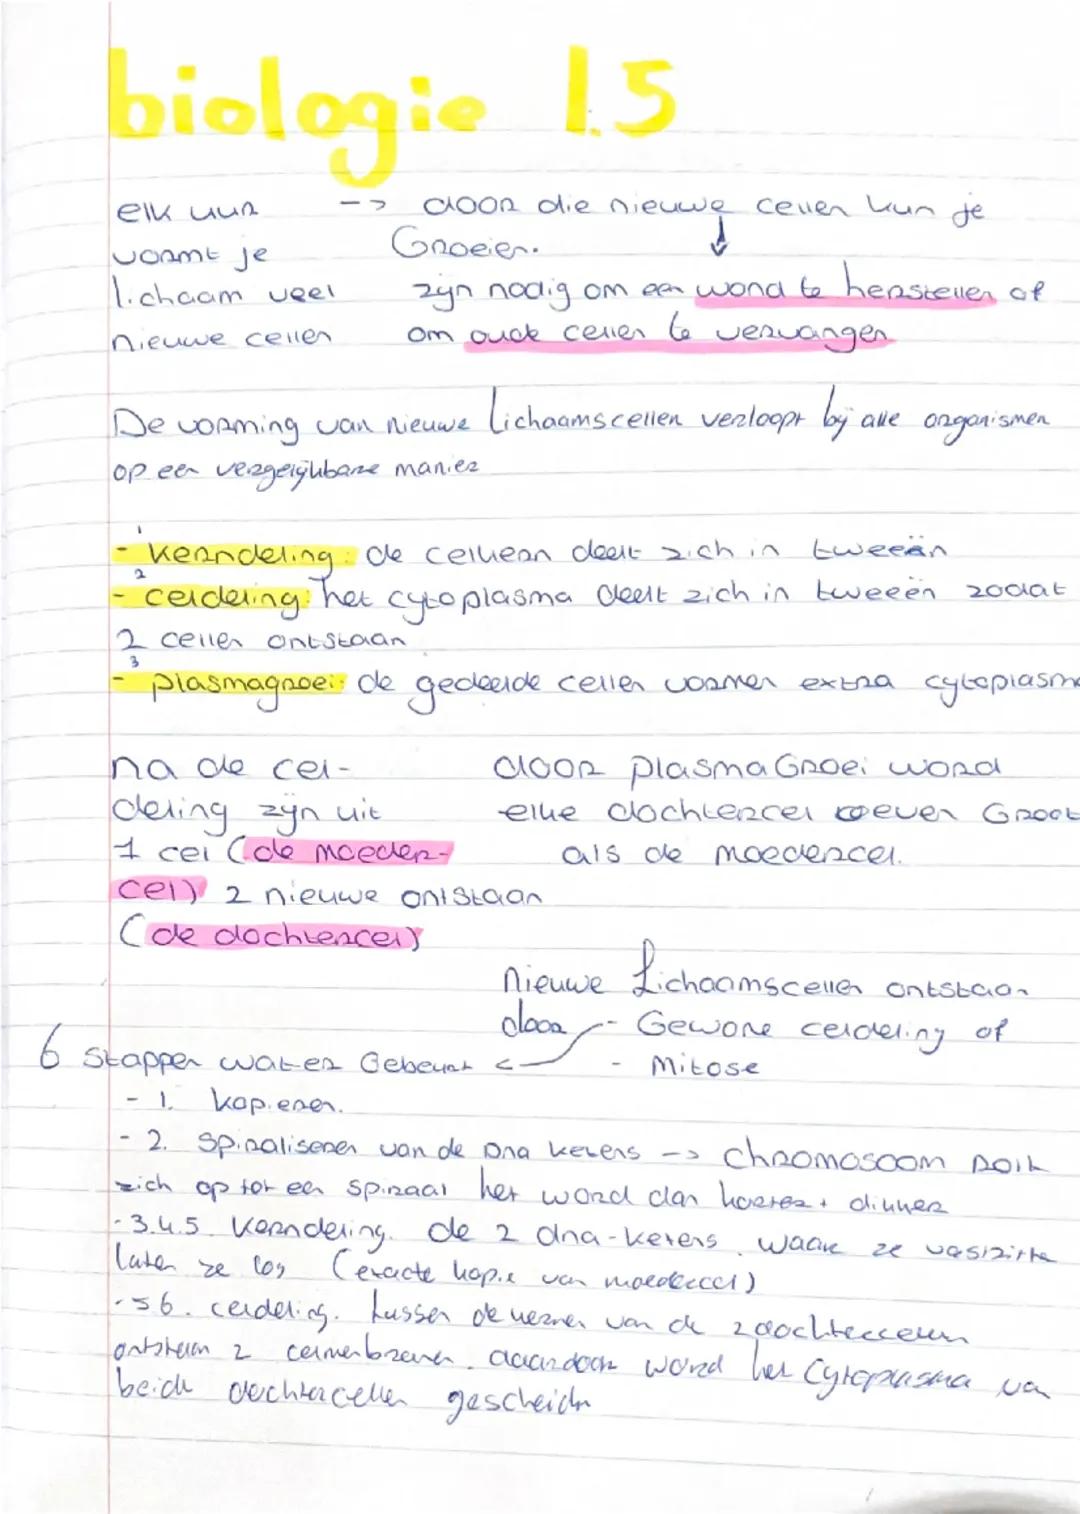 biologie 1.5
elk uur --> door die nieuwe cellen kun je
vormt je Groeien. ↓
lichaam veel zijn nodig om een wond te herstellen of
nieuwe cellen om oude cellen te vervangen
De vorming van nieuwe lichaamscellen verloopt bij alle organismen
op een vergelijkbare manier
1
- kerndeling: de celkern deelt zich in tweeën
2
- celdeling: het cytoplasma deelt zich in tweeën zodat
2 cellen ontstaan
3
- plasmagroei: de gedeelde cellen vormen extra cytoplasma
na de cel-
deling zijn uit
1 cel (de moeder-
cel) 2 nieuwe ontstaan
(de dochtercel)
door plasmaGroei word
elke dochtercel even Groot
als de moedercel.
nieuwe Lichaamscellen ontstaan
door - Gewone celdeling of
- Mitose
6 stappen wat er Gebeurt <-
- 1. kopieren.
- 2. Spiraliseren van de Dna ketens --> chromosoom Rolt
zich op tot een spiraal het word dan korter + dunner
- 3.4.5. Kerndeling. de 2 dna-ketens. waar ze vastzitten
laten ze los (exacte kopie van moedercel)
- 6. celdeling. tussen de kernen van de 2 dochtercellen
ontstaan 2 celmembranen. daardoor word het Cytoplasma van
beide dochtercellen gescheiden